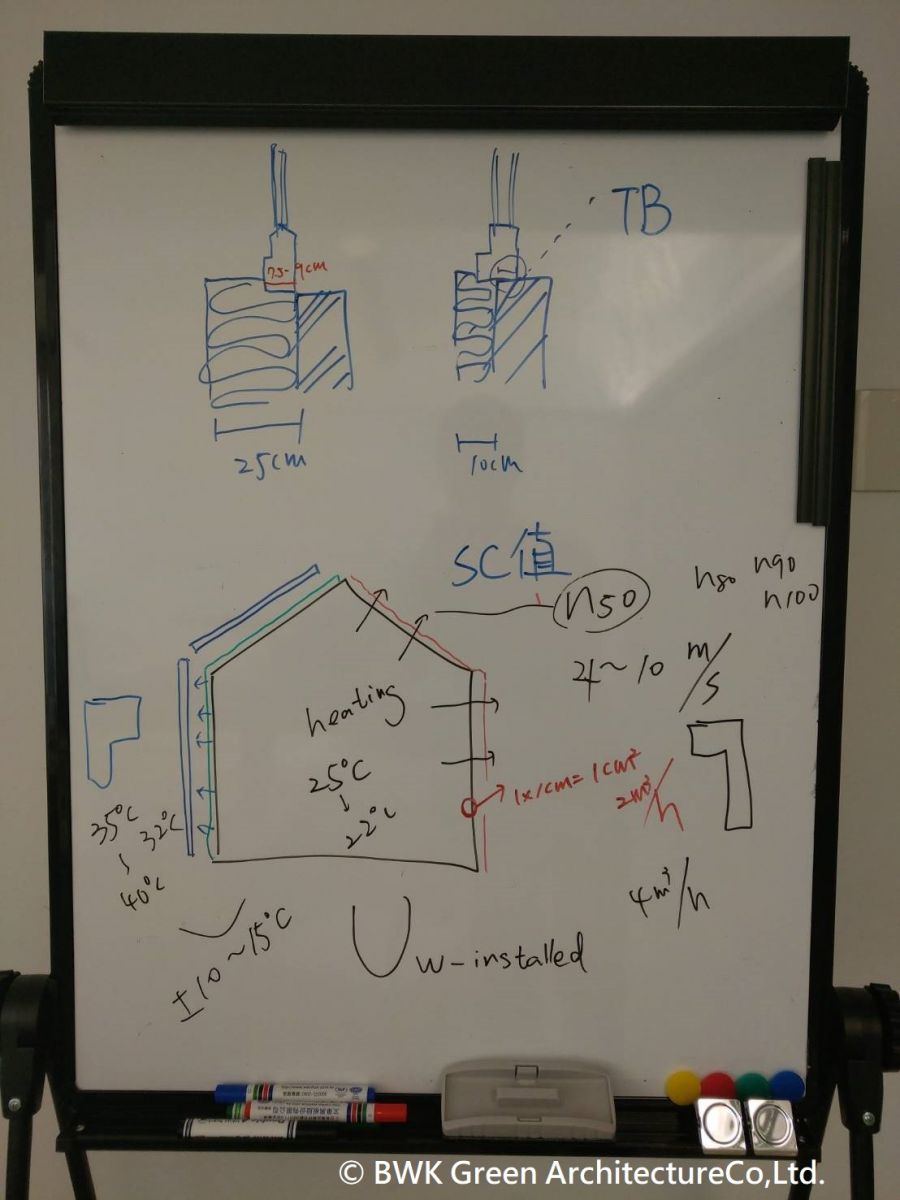 TB
7.5-9cm
25cm
10cm
SC值
n50
n80 n90
n100
4~10 m/s
heating
25°C
22°C
1x1cm=1cm²
2m³/h
35°C 32°C
40°C
4m³/h
±10~15°C
Uw-installed
© BWK Green ArchitectureCo,Ltd.